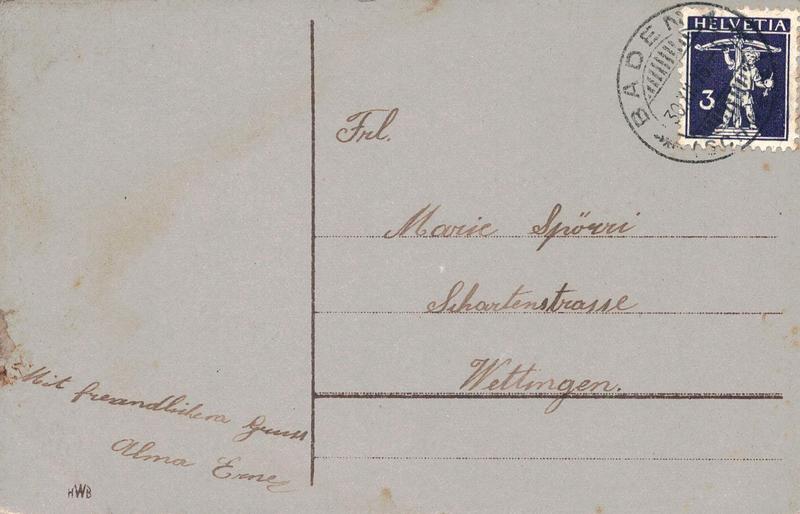 HELVETIA
3
BADEN
Frl.
Marie Spörri
Schartenstrasse
Wettingen.
Mit freundlichem Gruss
Alma Erne
HWB